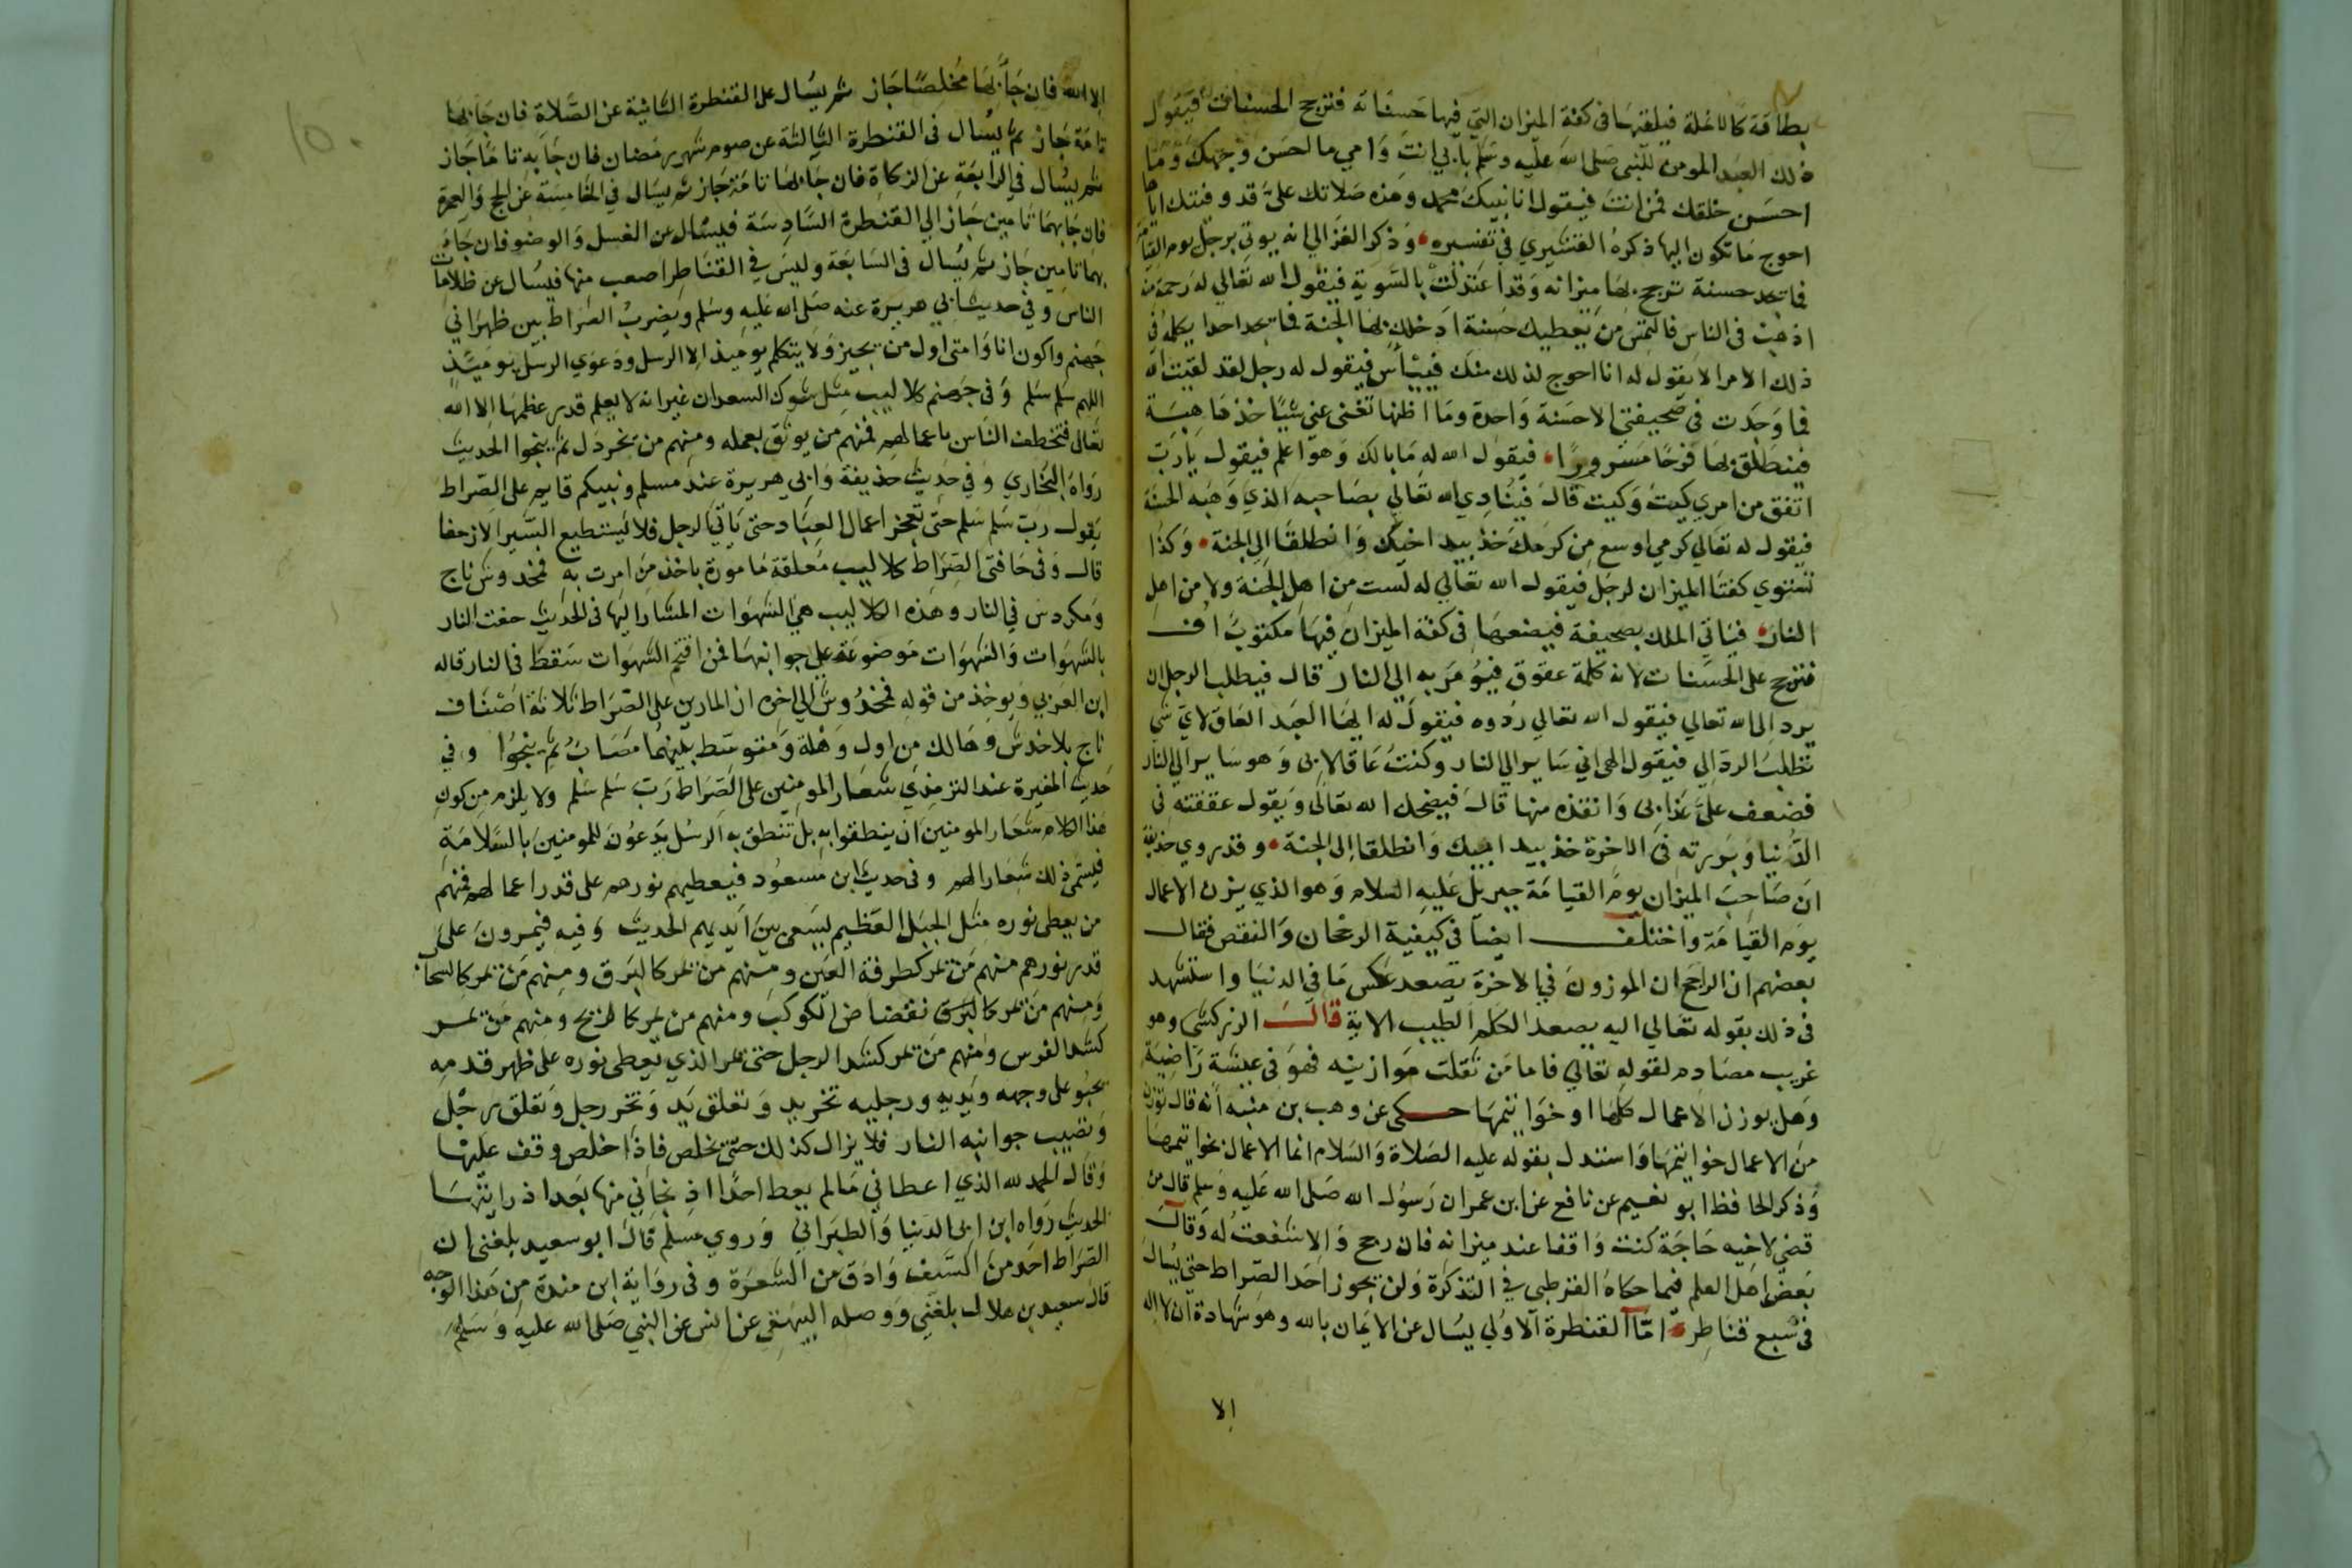 بطاقة كالانملة فيلقيها في كفة الميزان التي فيها حسناته فترجح الحسنات فيقول
ذلك العبد المومن للنبي صلى الله عليه وسلم بابي انت وامي ما احسن وجهك وما
احسن خلقك فمن انت فيقول انا نبيك محمد وهذه صلاتك علي قد وفيتك اياها
احوج ما تكون اليها ذكره القشيري في تفسيره وذكر الغزالي انه يوتي برجل يوم القيامة
فما يجد حسنة ترجح بها ميزانه وقد اعتدلت بالسوية فيقول الله تعالي له رحمة منه
اذهب في الناس فالتمس من يعطيك حسنة ادخلك بها الجنة فما يجد احدا يكلمه في
ذلك الامر الا يقول له انا احوج لذلك منك فييأس فيقول له رجل لقد لقيت الله
فما وجدت في صحيفتي الا حسنة واحدة وما اظنها تغني عني شيا خذها هبة
فينطلق بها فرحا مسرورا فيقول الله له ما بالك وهو اعلم فيقول يا رب
اتفق من امري كيت وكيت قال فينادي الله تعالي بصاحبه الذي وهبه الحسنة
فيقول له تعالي كرمي اوسع من كرمك خذ بيد اخيك وانطلقا الي الجنة وكذا
تستوي كفتا الميزان لرجل فيقول الله تعالي له لست من اهل الجنة ولا من اهل
النار فياتي الملك بصحيفة فيضعها في كفة الميزان فيها مكتوب اف
فترجح على الحسنات لانه كلمة عقوق فيؤمر به الي النار قال فيطلب الرجل ان
يرد الى الله تعالي فيقول الله تعالي ردوه فيقول له ايها العبد العاق لاي شي
تطلب الرد الي فيقول الهي اني ساير الي النار وكنت عاقا لابي وهو ساير الي النار
فضعف علي عذابي وانقذه منها قال فيضحك الله تعالى ويقول عققته في
الدنيا وبررته في الاخرة خذ بيد ابيك وانطلقا إلى الجنة وقد روي حذيفة
ان صاحب الميزان يوم القيامة جبريل عليه السلام وهو الذي يزن الاعمال
يوم القيامة واختلف ايضا في كيفية الرجحان والنقص فقال
بعضهم ان الراجح ان الموزون في الاخرة يصعد عكس ما في الدنيا واستشهد
في ذلك بقوله تعالي اليه يصعد الكلم الطيب الاية قال الزركشي وهو
غريب مصادم لقوله تعالي فاما من ثقلت موازينه فهو في عيشة راضية
وهل يوزن الاعمال كلها او خواتيمها حكى عن وهب بن منبه انه قال توزن
من الاعمال خواتيمها واستدل بقوله عليه الصلاة والسلام انما الاعمال بخواتيمها
وذكر الحافظ ابو نعيم عن نافع عن ابن عمر ان رسول الله صلى الله عليه وسلم قال من
قضى لاخيه حاجة كنت واقفا عند ميزانه فان رجح والا شفعت له وقال
بعض اهل العلم فيما حكاه القرطبي في التذكرة ولن يجوز احد الصراط حتى يسال
في سبع قناطر اما القنطرة الاولي يسال عن الايمان بالله وهو شهادة ان لا اله
الا
١٥٠
الا الله فان جا بها مخلصا جاز ثم يسال على القنطرة الثانية عن الصلاة فان جا بها
تامة جاز ثم يسال في القنطرة الثالثة عن صوم شهر رمضان فان جا به تاما جاز
ثم يسال في الرابعة عن الزكاة فان جا بها تامة جاز ثم يسال في الخامسة عن الحج والعمرة
فان جا بهما تامين جاز الي القنطرة السادسة فيسال عن الغسل والوضو فان جا
بهما تامين جاز ثم يسال في السابعة وليس في القناطر اصعب منها فيسال عن ظلامات
الناس وفي حديث ابي هريرة عنه صلى الله عليه وسلم ويضرب الصراط بين ظهراني
جهنم واكون انا وامتي اول من يجيز ولا يتكلم يوميذ الا الرسل ودعوي الرسل يوميذ
اللهم سلم سلم وفي جهنم كلاليب مثل شوك السعدان غير انه لا يعلم قدر عظمها الا الله
تعالى فتخطف الناس باعمالهم فمنهم من يوثق بعمله ومنهم من يخردل ثم ينجوا الحديث
رواه البخاري وفي حديث حذيفة وابي هريرة عند مسلم ونبيكم قايم على الصراط
يقول رب سلم سلم حتى تعجز اعمال العباد حتى ياتي الرجل فلا يستطيع السير الا زحفا
قال وفي حافتي الصراط كلاليب معلقة مامورة باخذ من امرت به فمخدوش ناج
ومكردس في النار وهذه الكلاليب هي الشهوات المشار اليها في الحديث حفت النار
بالشهوات والشهوات موضوعة على جوانبها فمن اقتحم الشهوات سقط في النار قاله
ابن العربي ويوخذ من قوله فمخدوش الي اخره ان المارين على الصراط ثلاثة اصناف
ناج بلا خدش وهالك من اول وهلة ومتوسط بينهما مصاب ثم ينجوا وفي
حديث المغيرة عند الترمذي شعار المومنين على الصراط رب سلم سلم ولا يلزم من كون
هذا الكلام شعار المومنين ان ينطقوا به بل تنطق به الرسل يدعون للمومنين بالسلامة
فيسمى ذلك شعارا لهم وفي حديث ابن مسعود فيعطيهم نورهم على قدر اعمالهم فمنهم
من يعطى نوره مثل الجبل العظيم يسعى بين ايديهم الحديث وفيه فيمرون على
قدر نورهم منهم من يمر كطرفة العين ومنهم من يمر كالبرق ومنهم من يمر كالسحاب
ومنهم من يمر كانقضاض الكوكب ومنهم من يمر كالريح ومنهم من يمر
كشد الفرس ومنهم من يمر كشد الرجل حتى يمر الذي يعطى نوره على ظهر قدمه
يحبو على وجهه ويديه ورجليه تخر يد وتعلق يد وتخر رجل وتعلق رجل
وتصيب جوانبه النار فلا يزال كذلك حتى يخلص فاذا خلص وقف عليها
وقال الحمد لله الذي اعطاني ما لم يعط احدا اذ نجاني منها بعد اذ رايتها
الحديث رواه ابن ابي الدنيا والطبراني وروي مسلم قال ابو سعيد بلغني ان
الصراط احد من السيف وادق من الشعرة وفي رواية ابن مندة من هذا الوجه
قال سعيد بن هلال بلغني ووصله البيهقي عن انس عن النبي صلى الله عليه وسلم